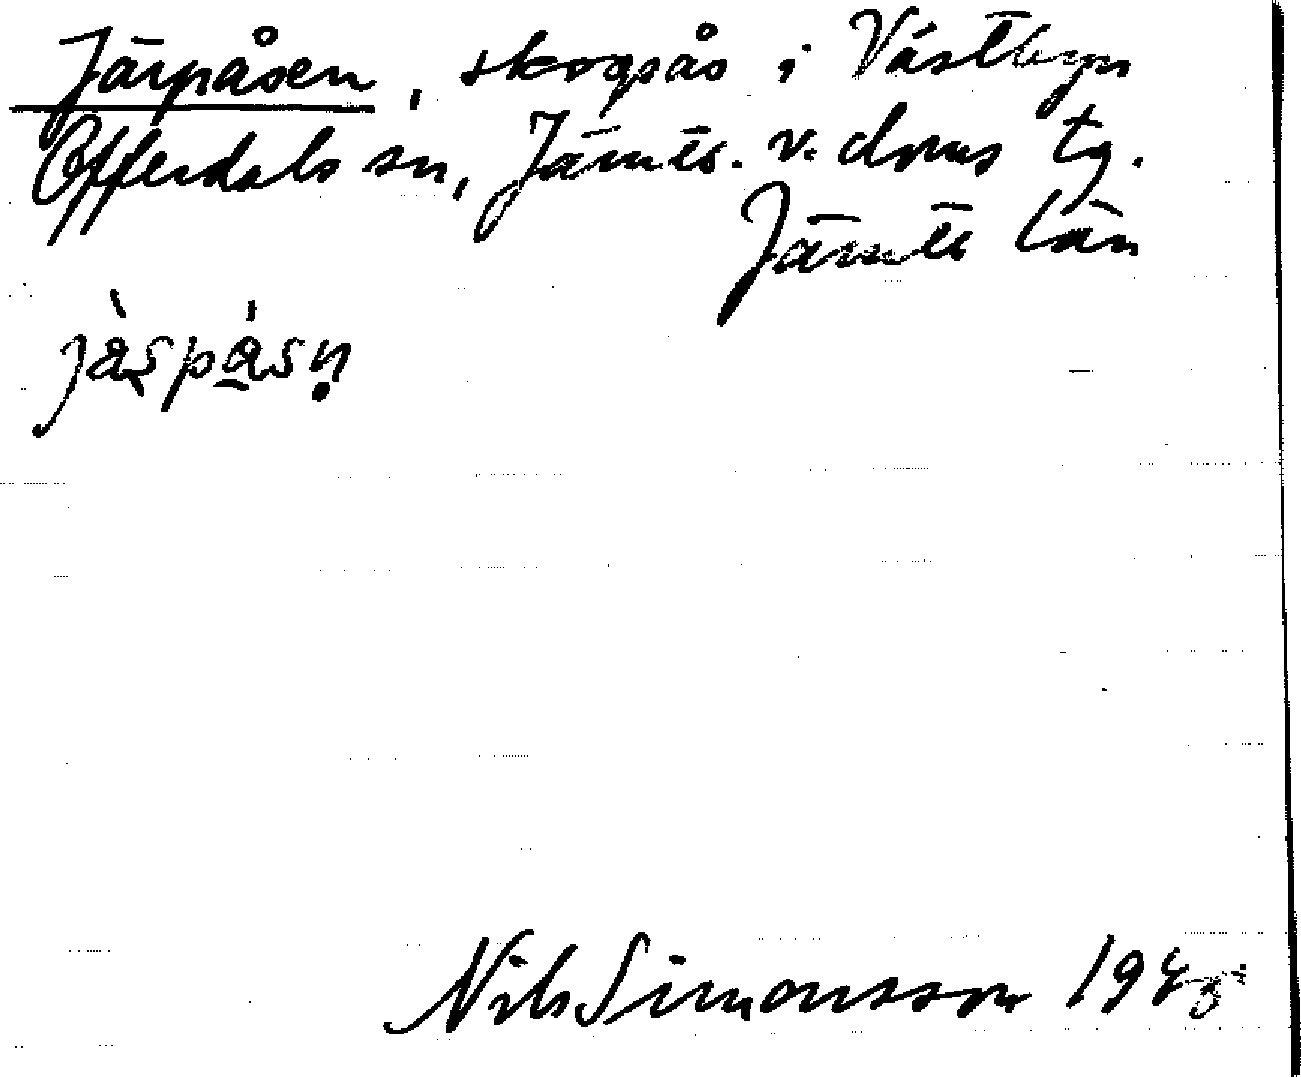 Järpåsen, skogsås i Västbyn
Offerdals sn, Jämts. v. doms tg.
Jämts län
jàspásn̥
Nils Simonsson 194